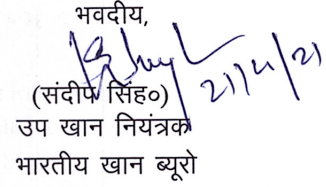 भवदीय,
(संदीप सिंह०)
उप खान नियंत्रक
भारतीय खान ब्यूरो